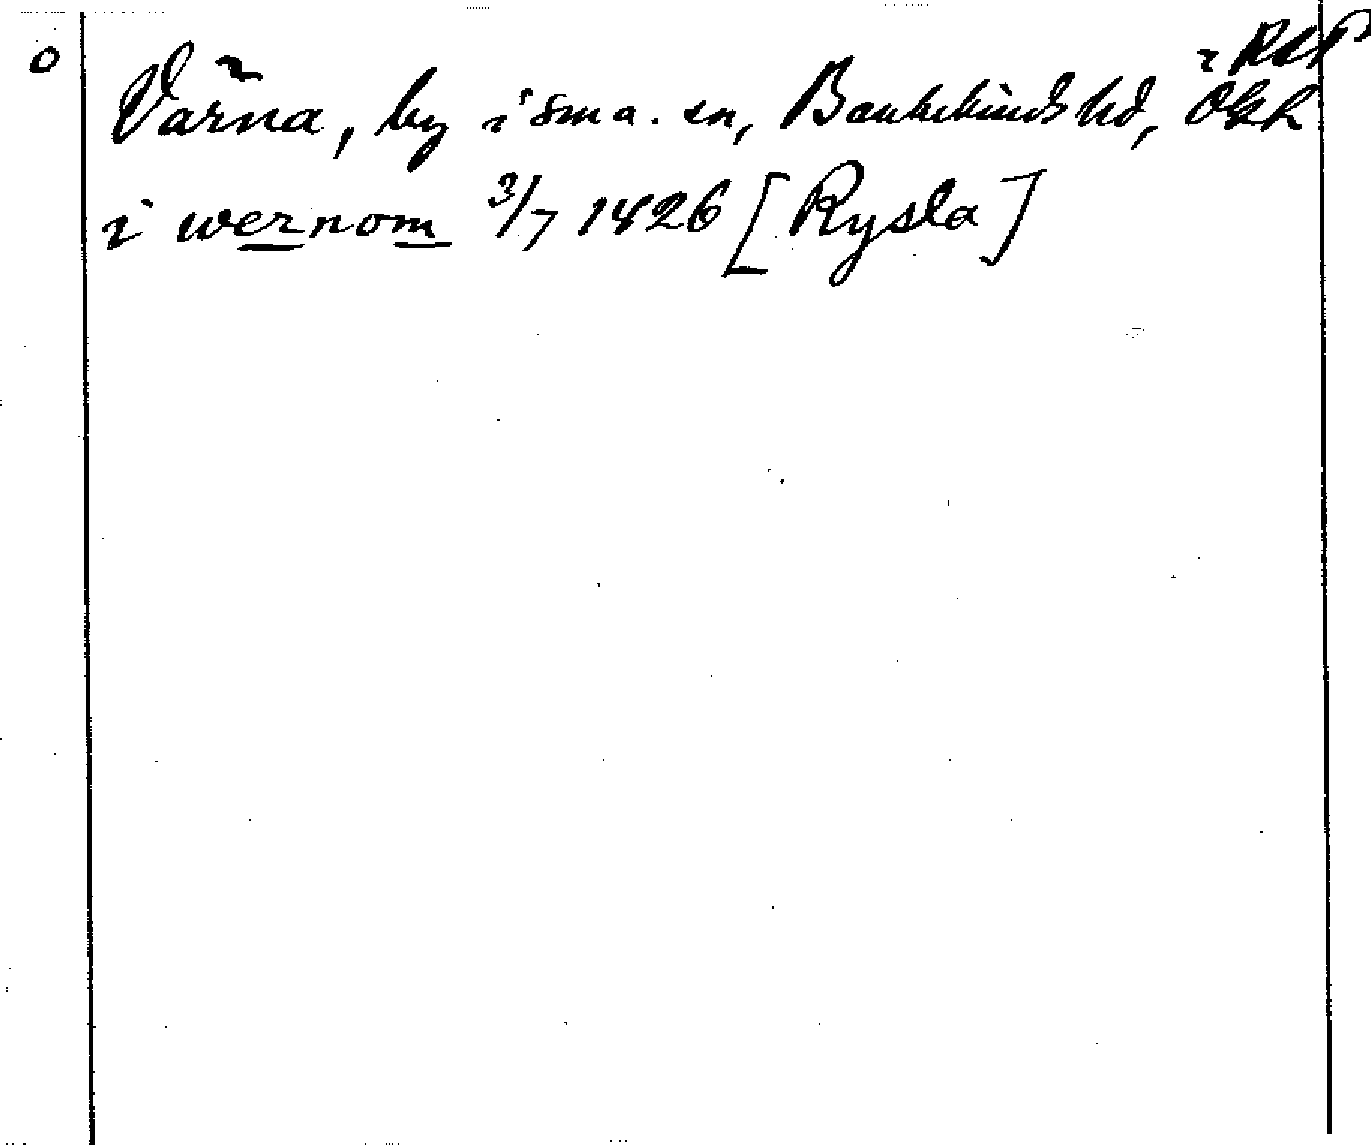 o
Värna, by i sm a. sn, Bankekinds hd, Ögl
i wernom 3/7 1426 [Rysta]